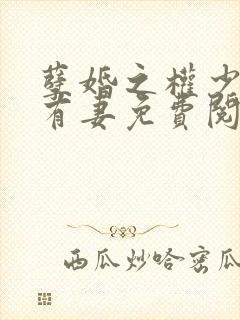 孽婚之權少
有妻免費閱
西瓜炒哈密瓜